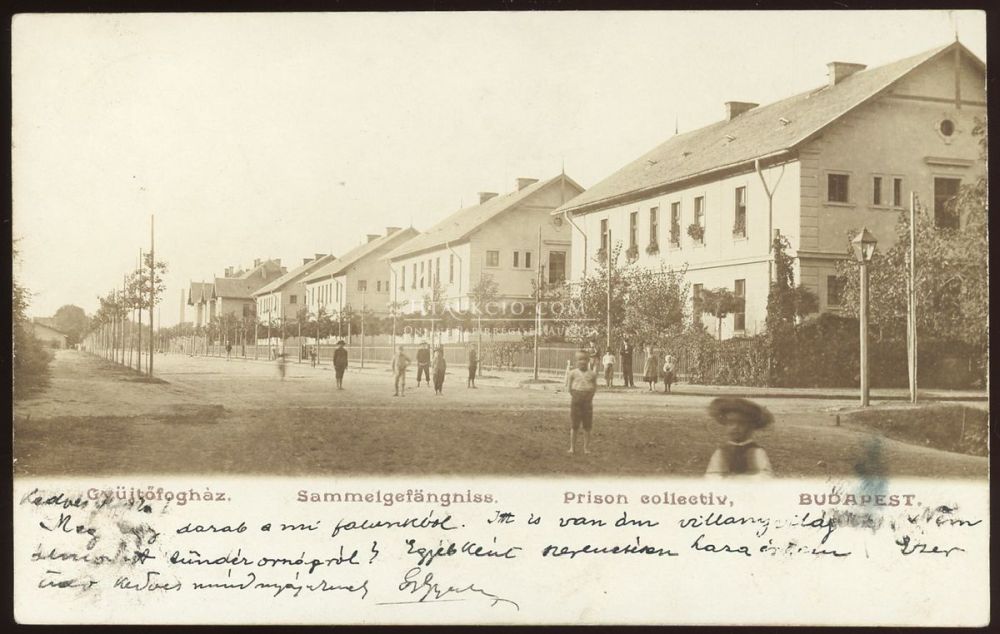 AUKCIO.COM
Gyüjtőfogház. Sammelgefängniss. Prison collectiv, BUDAPEST.
Kedves
Meg egy darab a mi falunkból. Itt is van ám villanyvilág Nem
álmodott tündérországról? Egyébként szerencsésen haza értem Ezer
üdv kedves mindnyájuknak